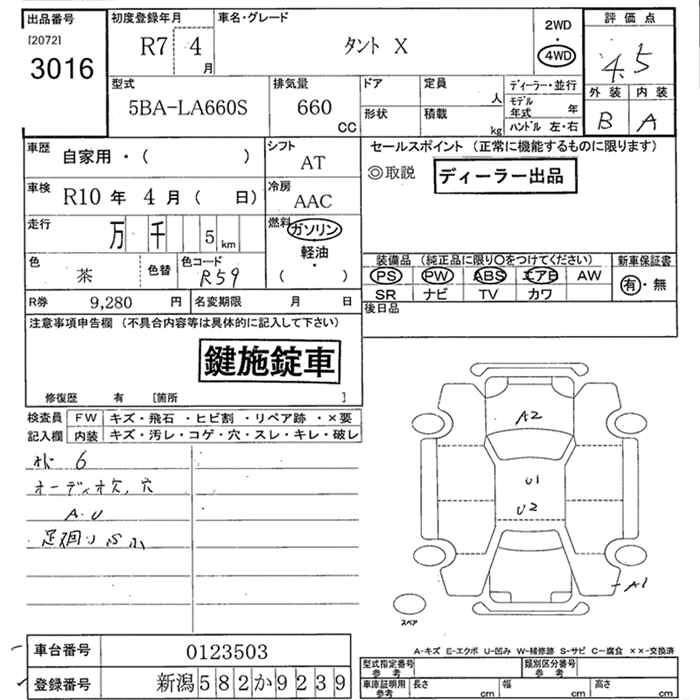 出品番号
[2072]
3016
初度登録年月
R7 4 月
車名・グレード
タント X
2WD
4WD
評価点
4.5
外装 内装
B A
型式
5BA-LA660S
排気量
660
CC
ドア
形状
定員
人
積載
kg
ディーラー・並行
モデル年式 年
ハンドル 左・右
車歴
自家用・( )
シフト
AT
車検
R10 年 4 月 ( 日)
冷房
AAC
走行
万 千 5 km
燃料
ガソリン
軽油
・
( )
色
茶
色替
色コード
R59
R券
9,280 円
名変期限 月 日
セールスポイント (正常に機能するものに限ります)
◎取説
ディーラー出品
装備品 (純正品に限り○をつけてください)
PS PW ABS エアB AW
SR ナビ TV カワ
新車保証書
有・無
後日品
注意事項申告欄 (不具合内容等は具体的に記入して下さい)
鍵施錠車
修復歴 有 [箇所 ]
検査員記入欄
FW キズ・飛石・ヒビ割・リペア跡・×要
内装 キズ・汚レ・コゲ・穴・スレ・キレ・破レ
6
オーディオ欠,穴
A.U
足廻りサビ小
A2
U1
U2
A1
スペア
A-キズ E-エクボ U-凹み W-補修跡 S-サビ C-腐食 ××-交換済
車台番号
0123503
登録番号
新潟582か9239
型式指定番号
参考
類別区分番号
参考
車庫証明用
参考
長さ cm
幅 cm
高さ cm